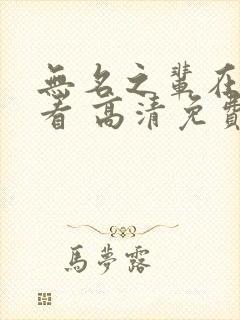 無名之輩在
看 高清免費
馬夢露